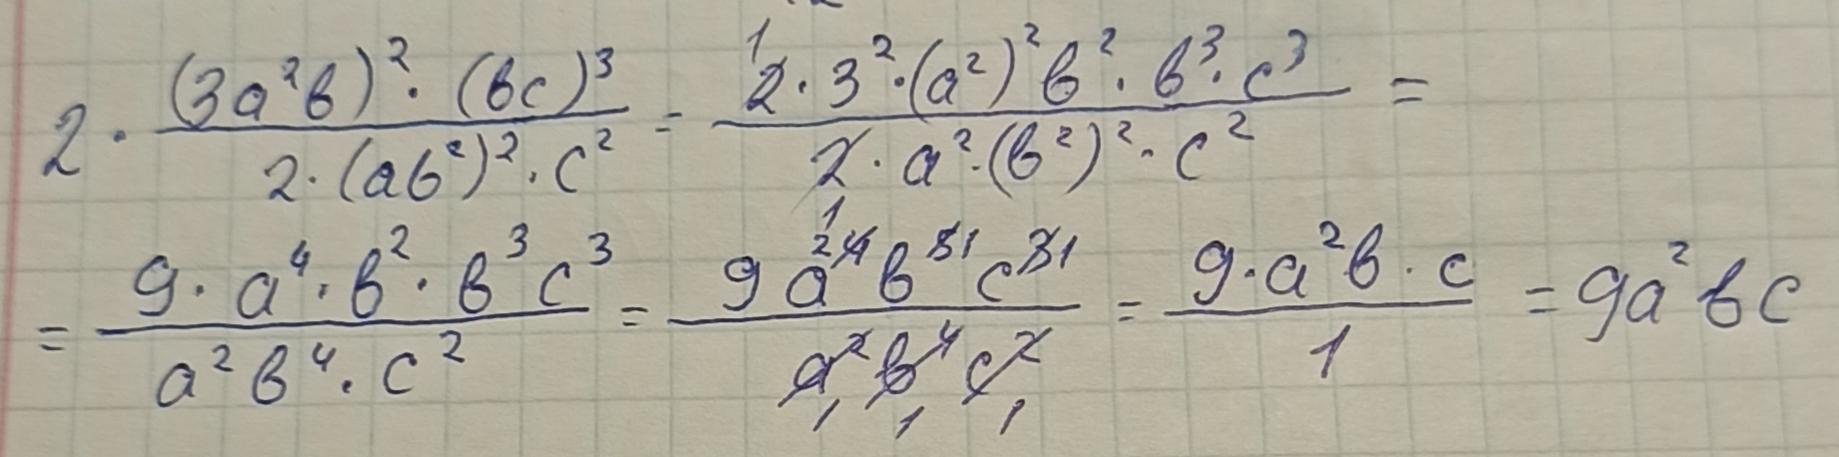 2 · (3a²b)² · (bc)³ / 2 · (ab²)² · c² = 2 · 3² · (a²)² b² · b³ · c³ / 2 · a² · (b²)² · c² =
= 9 · a⁴ · b² · b³ c³ / a² b⁴ · c² = 9 a⁴ b⁵ c³ / a² b⁴ c² = 9 · a² b · c / 1 = 9a² b c